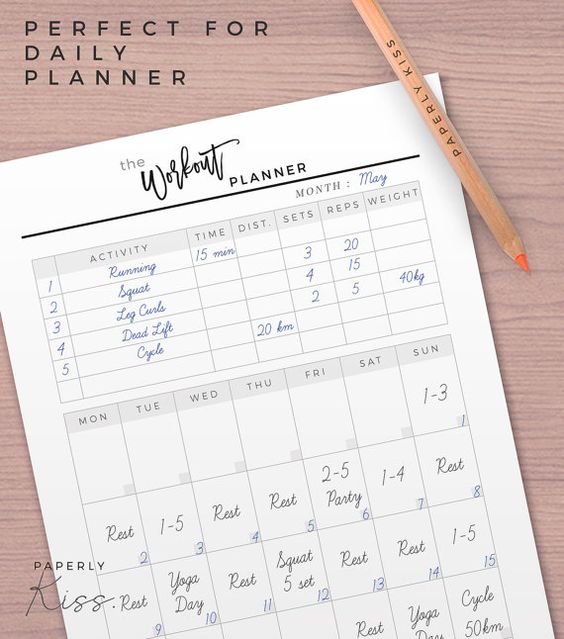 PERFECT FOR
DAILY
PLANNER
PAPERLY KISS
the Workout PLANNER
MONTH : May
ACTIVITY TIME DIST. SETS REPS WEIGHT
1 Running 15 min
2 Squat 3 20
3 Leg Curls 4 15
4 Dead Lift 2 5 40kg
5 Cycle 20 km
MON TUE WED THU FRI SAT SUN
1-3
1
Rest 1-5 Rest Rest 2-5 Party 1-4 Rest
2 3 4 5 6 7 8
Rest Yoga Day Rest Squat 5 set Rest Rest 1-5
9 10 11 12 13 14 15
Rest Yoga Day Cycle 50km
PAPERLY
Kiss.